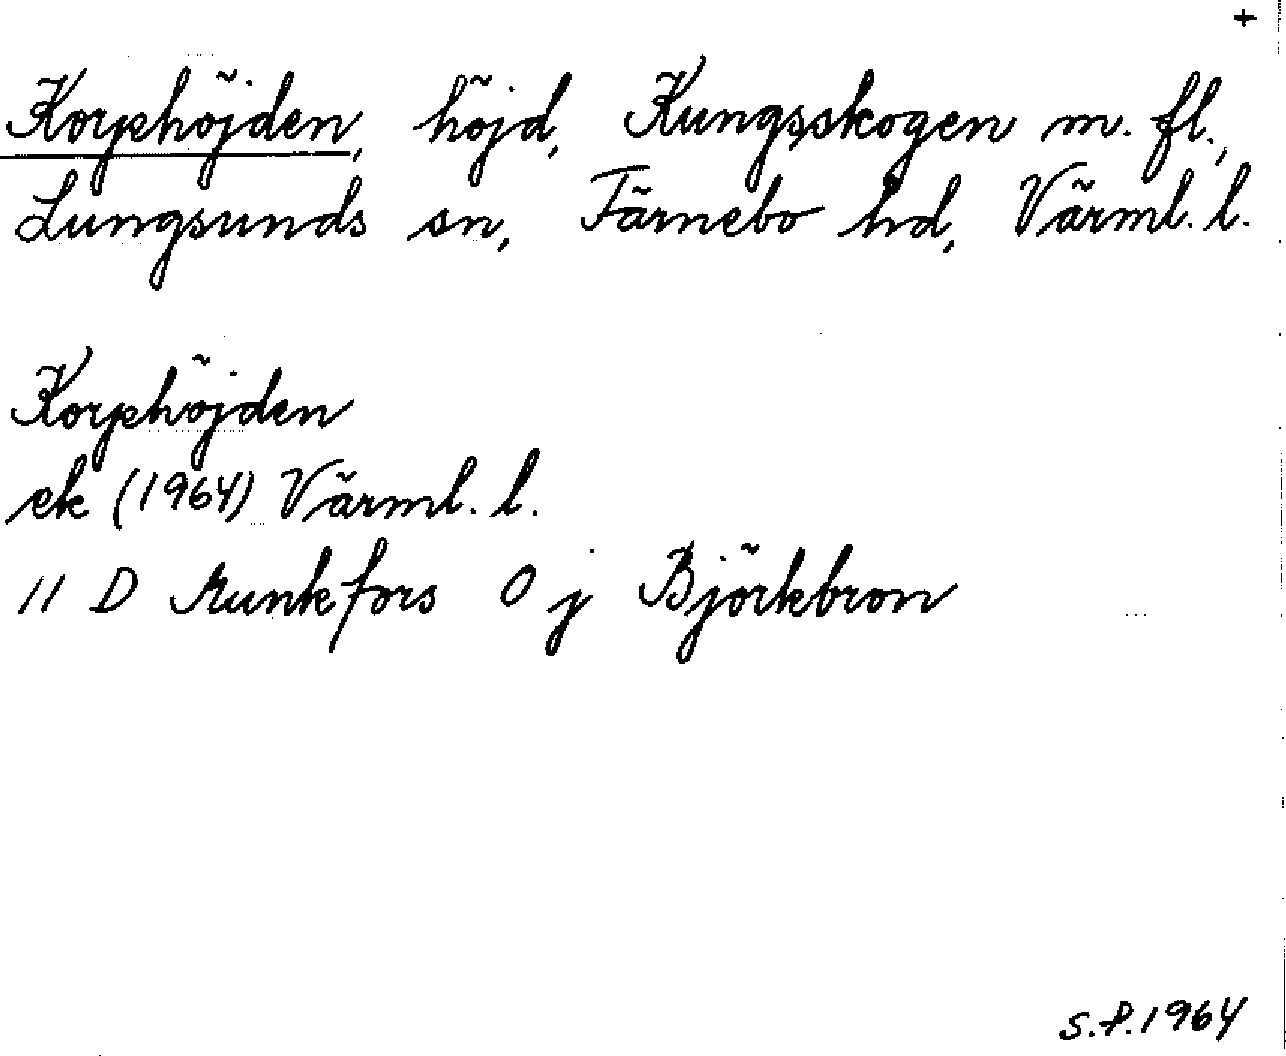 +
Korphöjden, höjd, Kungsskogen m. fl.,
Lungsunds sn, Färnebo hd, Värml. l.
Korphöjden
ek (1964) Värml. l.
11 D Munkfors O j Björkbron
S.P. 1964